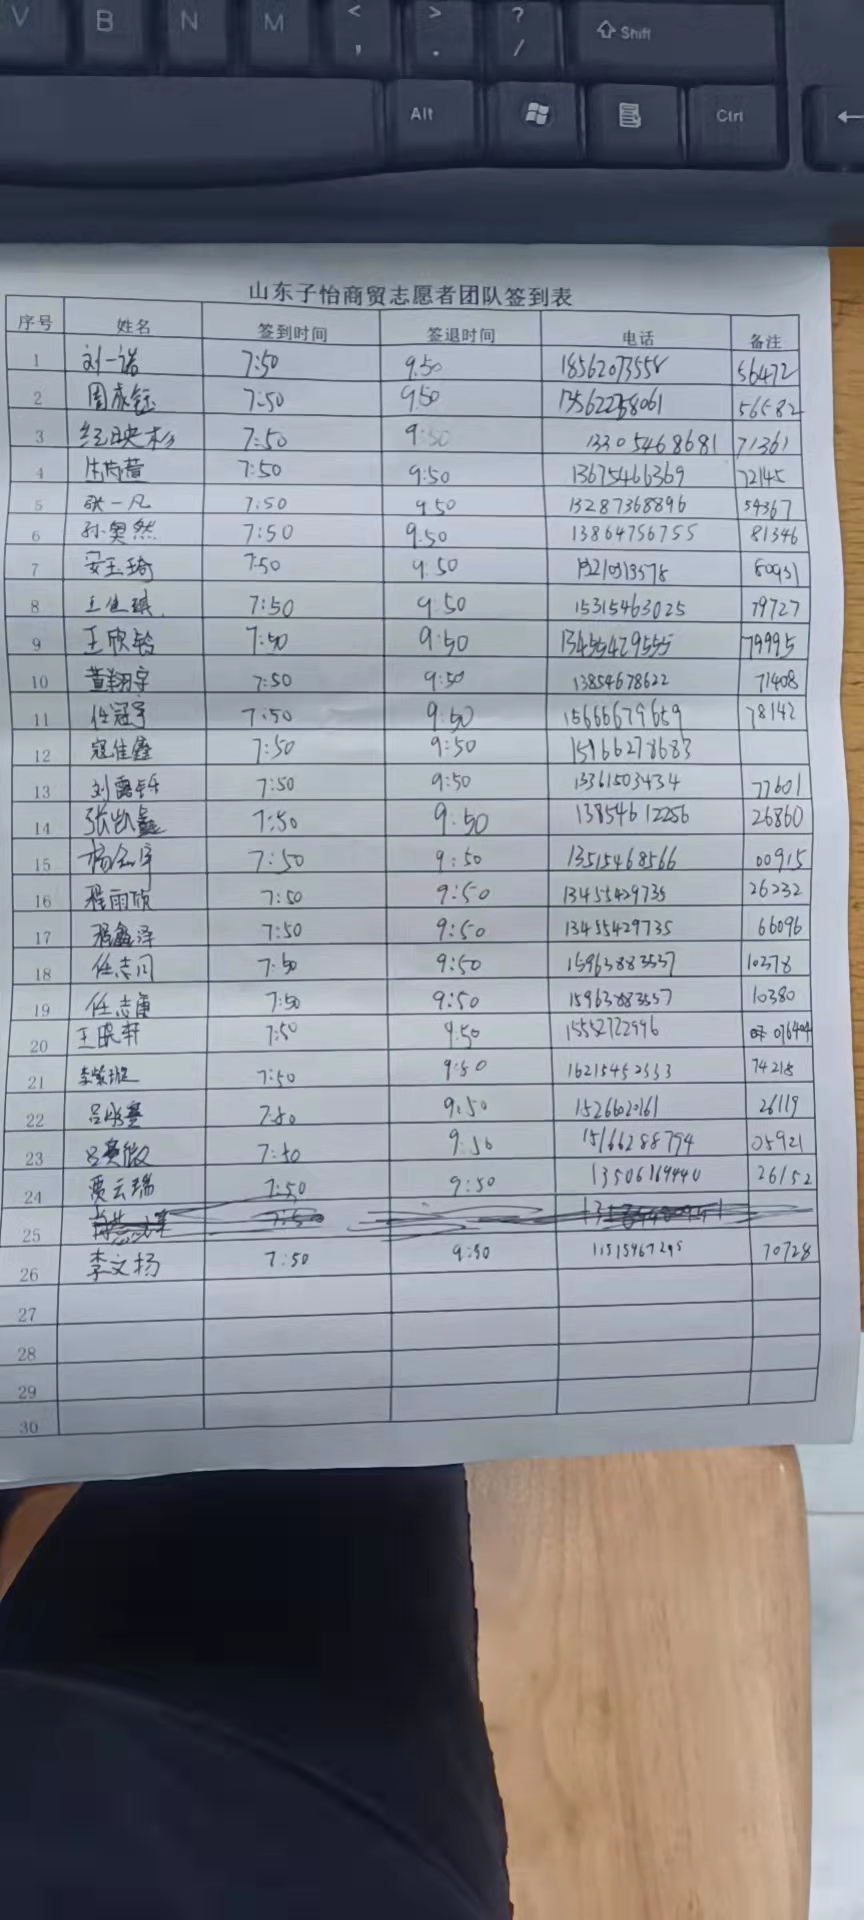 V B N M < , > . ? / Shift
Alt Ctrl
山东子怡商贸志愿者团队签到表
序号 姓名 签到时间 签退时间 电话 备注
1 刘一诺 7:50 9:50 18562073558 56472
2 周 7:50 9:50 13562258061 56582
3 纪映杉 7:50 9:50 13305468681 71361
4 7:50 9:50 13675466369 72145
5 张一凡 7:50 9:50 13287368896 54367
6 孙奥然 7:50 9:50 13864756755 81346
7 安玉琦 7:50 9:50 80931
8 王佳琪 7:50 9:50 15315463025 79727
9 王欣铃 7:50 9:50 13455429555 79995
10 董翔宇 7:50 9:50 13854678622 71408
11 任冠宇 7:50 9:50 15666679659 78142
12 寇佳鑫 7:50 9:50 15966278683
13 刘露 7:50 9:50 13361503434 77601
14 张凯鑫 7:50 9:50 13854612256 26860
15 杨 7:50 9:50 13515468566 00915
16 程雨欣 7:50 9:50 13455429735 26232
17 程鑫泽 7:50 9:50 13455429735 66096
18 任志 7:50 9:50 15963883537 10378
19 任志康 7:50 9:50 15963883537 10380
20 王晓轩 7:50 9:50 15552722996
21 李紫璇 7:50 9:50 74218
22 吕彤 7:50 9:50 15266020161 26119
23 吕 7:50 9:50 15166288794 05921
24 贾云瑞 7:50 9:50 13506169440 26152
25
26 李文扬 7:50 9:50 70728
27
28
29
30